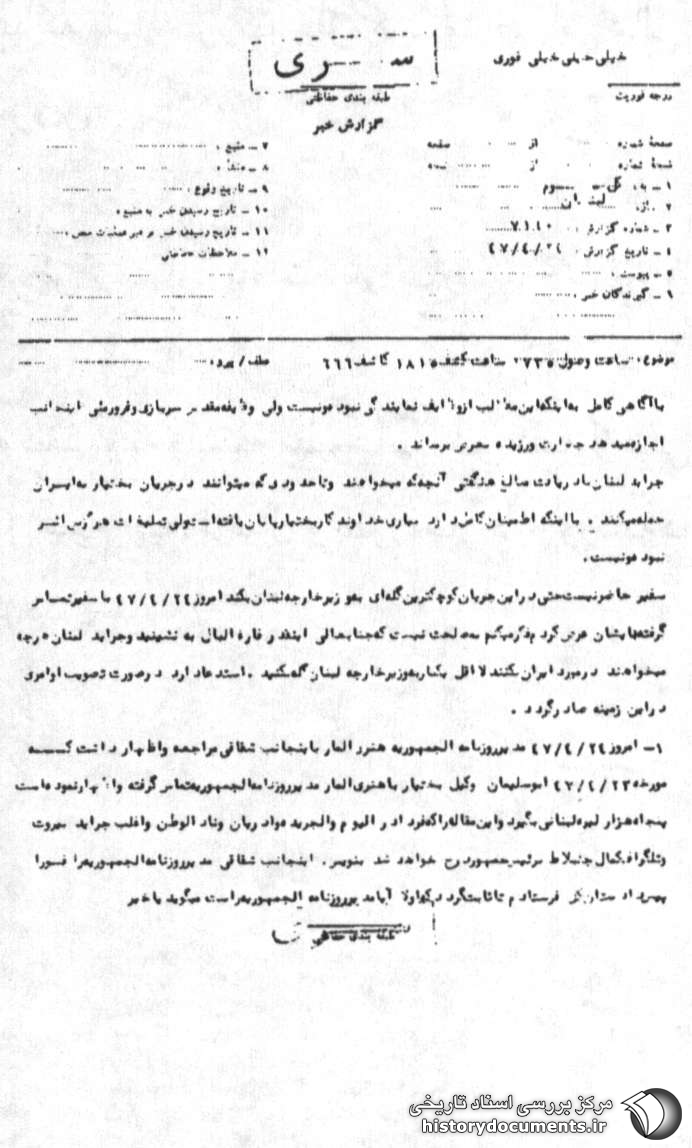 خیلی خیلی خیلی فوری
درجه فوریت
سری
طبقه بندی حفاظتی
گزارش خبر
صفحهٔ شماره از صفحه
نسخهٔ شماره از نسخه
۱ ـ به: کل سوم
۲ ـ از: لبنان
۳ ـ شماره گزارش:
۴ ـ تاریخ گزارش: ۴۷/۴/۲۴
۵ ـ پیوست:
۶ ـ گیرندگان خبر:
۷ ـ منبع:
۸ ـ منشاء:
۹ ـ تاریخ وقوع:
۱۰ ـ تاریخ رسیدن خبر به منبع:
۱۱ ـ تاریخ رسیدن خبر به رهبر عملیات محل:
۱۲ ـ ملاحظات حفاظتی
موضوع: ساعت وصول ۰۷۳۵ ساعت کشف ۱۸۱۵ کاشف ۶۶۶ عطف / پیرو:
با آگاهی کامل به اینکه این مطالب از وظایف نمایندگی نبوده و نیست ولی وظیفه مقدس سربازی و غرور ملی اینجانب
اجازه میدهد جسارت ورزیده بعرض برساند.
جراید لبنان با دریافت مبالغ هنگفتی آنچه که میخواهند و تا حدودی که میتوانند در جریان بختیار به ایران
حمله میکنند و با اینکه اطمینان کامل دارد بیاری خداوند کار بختیار پایان یافته است ولی تبلیغات هرگز بی اثر
نبوده و نیست.
سفیر حاضر نیست حتی در این جریان کوچکترین گله ای به وزیر خارجه لبنان بکند امروز ۴۷/۴/۲۴ با سفیر تماس
گرفته بایشان عرض کردم فکر میکنم مصلحت نیست که جنابعالی اینقدر فارغ البال به نشینید و جراید لبنان هر چه
میخواهند در مورد ایران بکنند لااقل یکبار به وزیر خارجه لبنان گله بکنید. استدعا دارد در صورت تصویب اوامری
در این زمینه صادر گردد.
۱ـ امروز ۴۷/۴/۲۴ مدیر روزنامه الجمهوریه هنری المار با اینجانب شقاقی مراجعه و اظهار داشت که
مورخه ۴۷/۴/۲۳ ابوسلیمان وکیل بختیار با هنری المار مدیر روزنامه الجمهوریه تماس گرفته و اظهار نموده است
پنجاه هزار لیره لبنانی بگیرد و این مقاله را که فردا در الیوم والجریده و ادریان و نداء الوطن و اغلب جراید بیروت
و تلگراف کمال جنبلاط رئیس جمهور درج خواهد شد بنویس. اینجانب شقاقی مدیر روزنامه الجمهوریه را فوراً
فرستادم تا ثابت گردد که اولا آیا مدیر روزنامه الجمهوریه راست میگوید یا خیر
طبقه بندی حفاظتی
مرکز بررسی اسناد تاریخی
historydocuments.ir